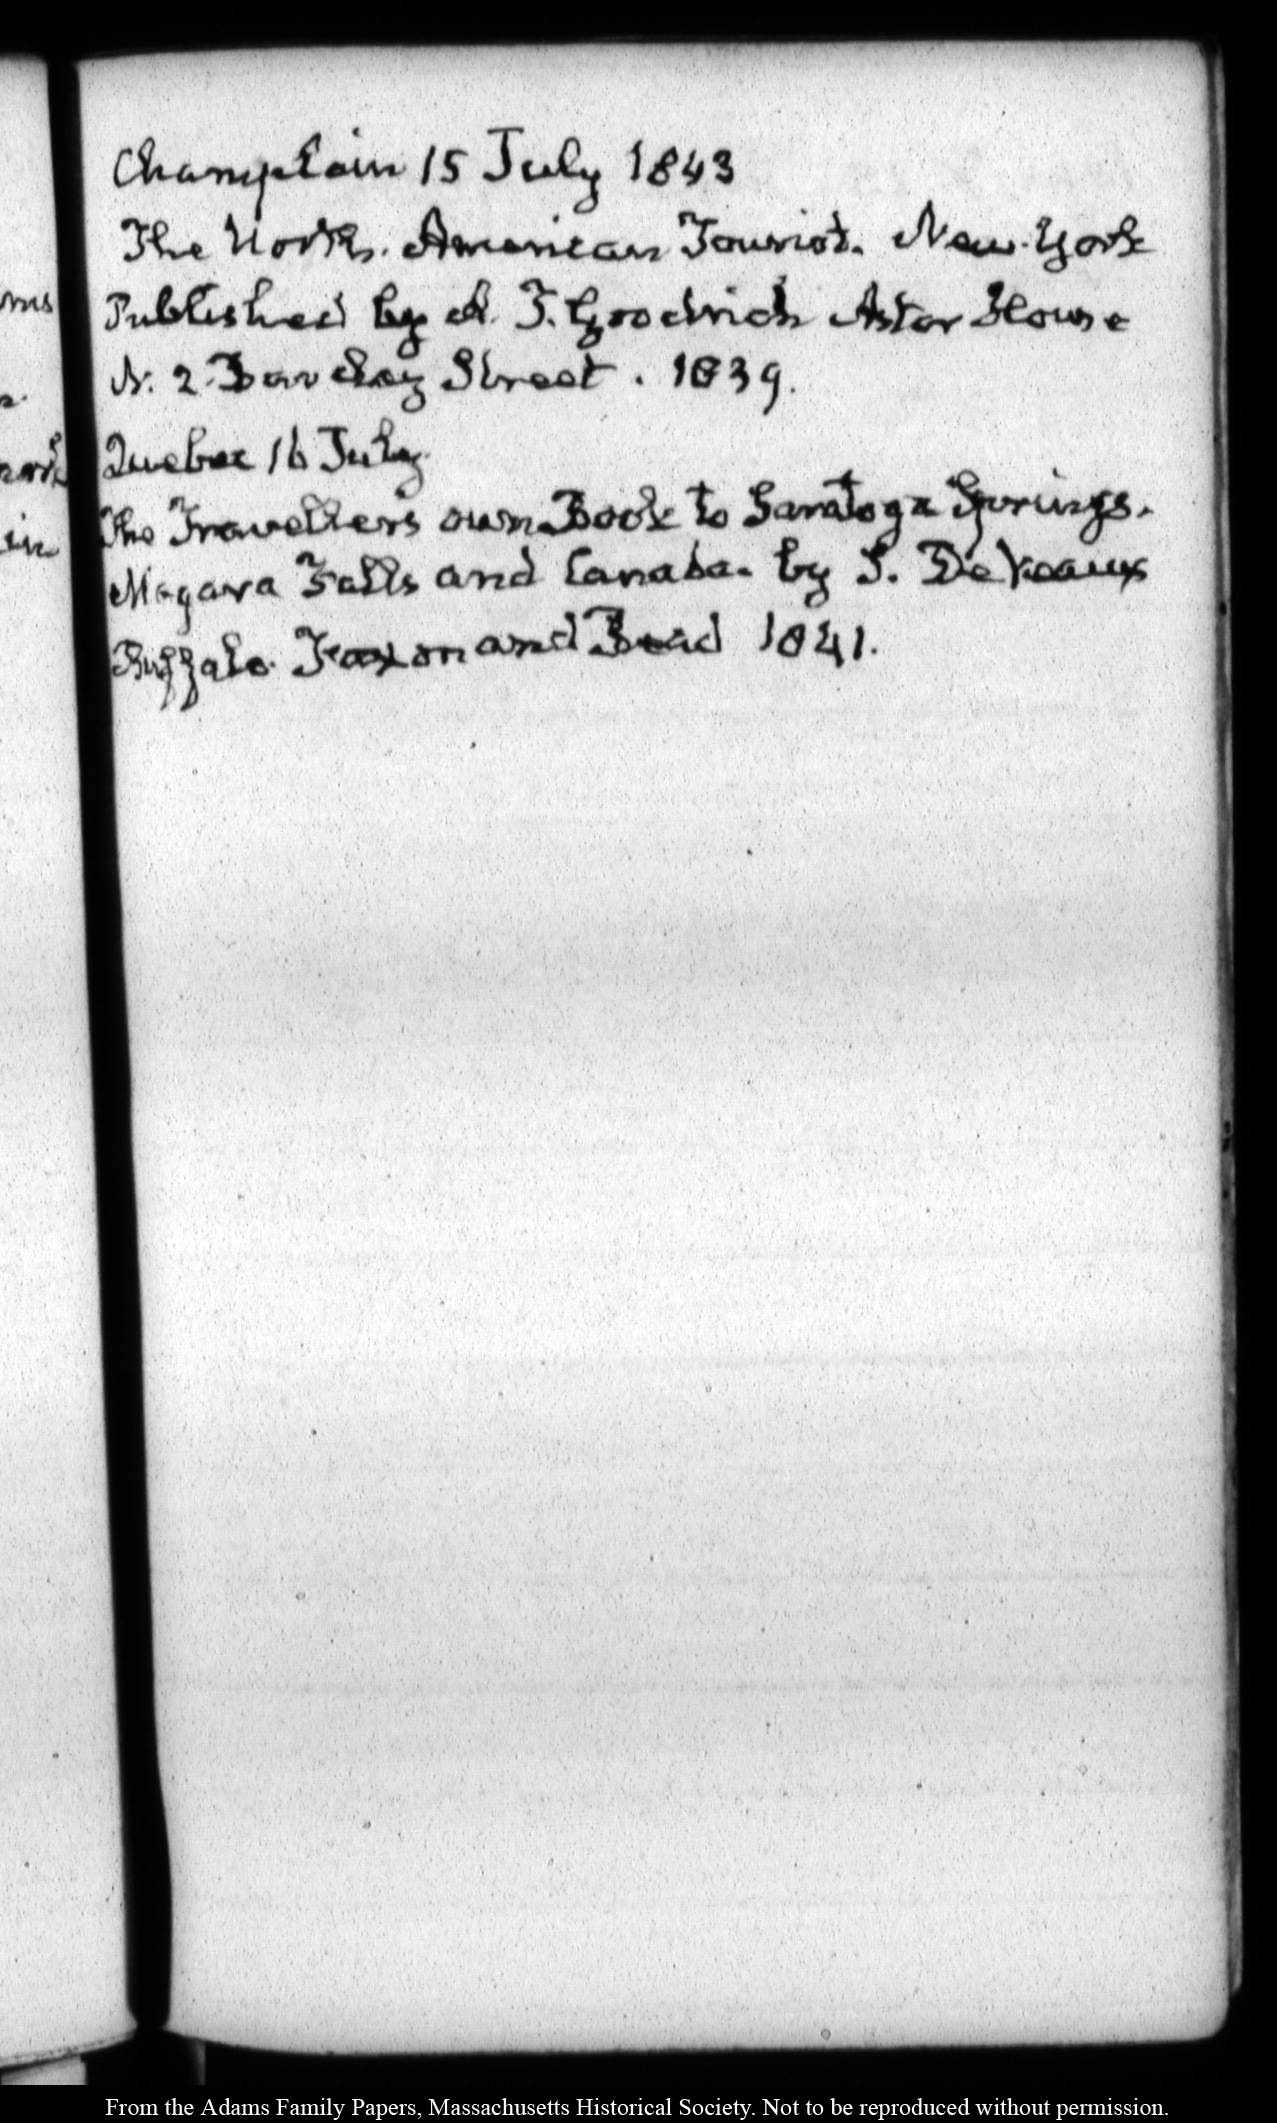 Champlain 15 July 1843
The North. American Tourist. New-York
Published by A. T. Goodrich Astor House
N. 2. Barclay Street. 1839.
Quebec 16 July.
The Traveller's own Book to Saratoga Springs.
Niagara Falls and Canada. by S. De Veaux
Buffalo. Faxon and Read 1841.
From the Adams Family Papers, Massachusetts Historical Society. Not to be reproduced without permission.